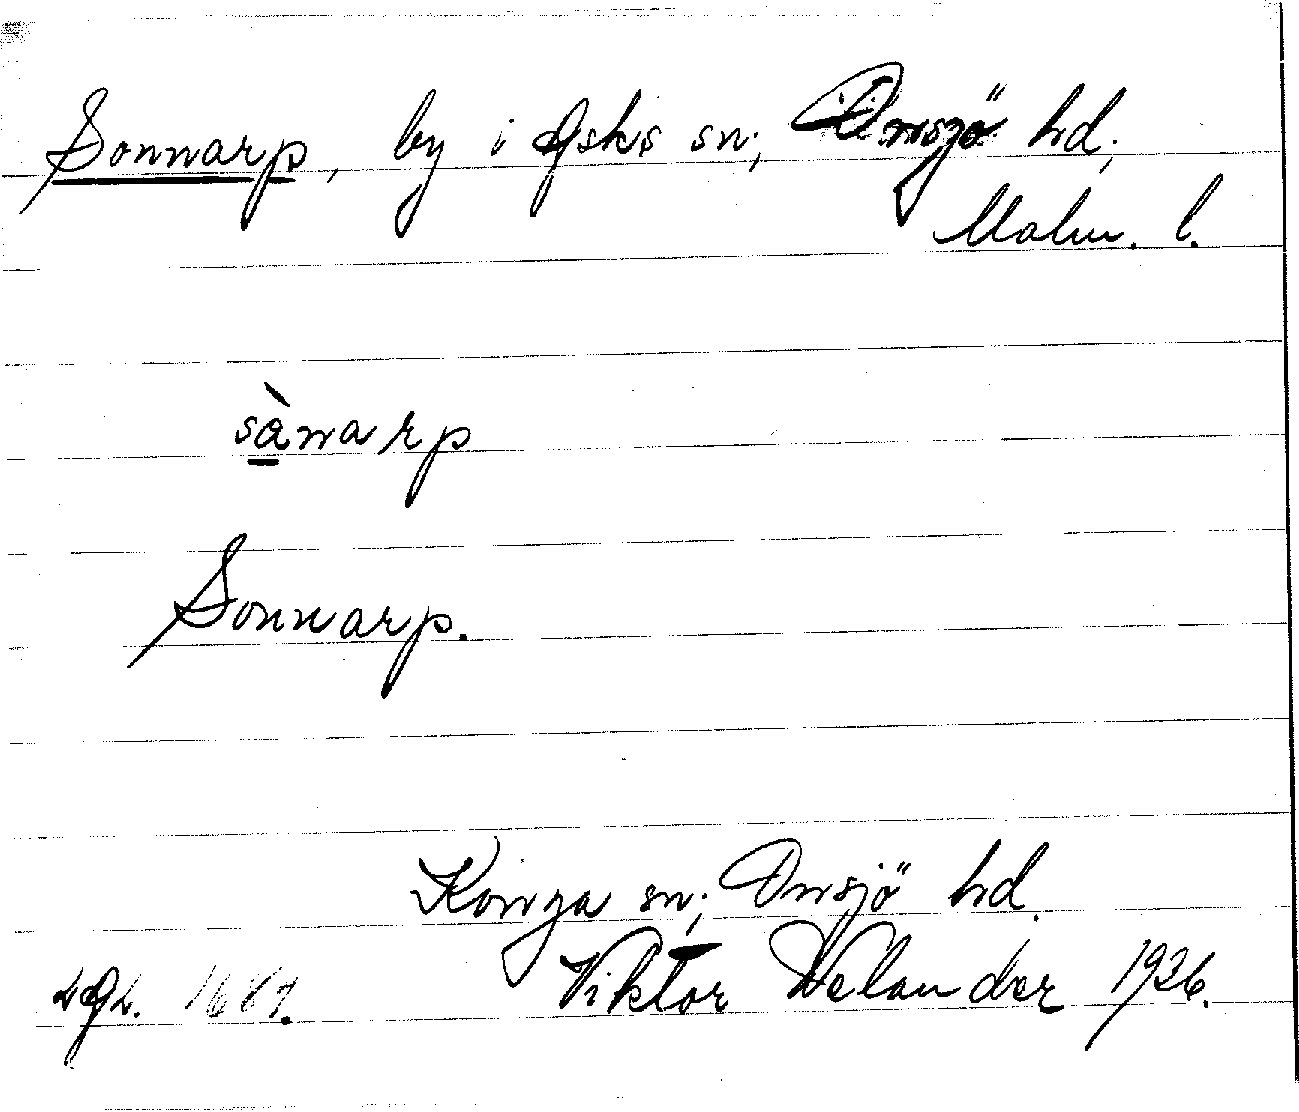 Sonnarp, by i Asks sn; Onsjö hd,
Malm. l.
sànarp
Sonnarp.
Konga sn; Onsjö hd.
Viktor Welander 1926.
1681.